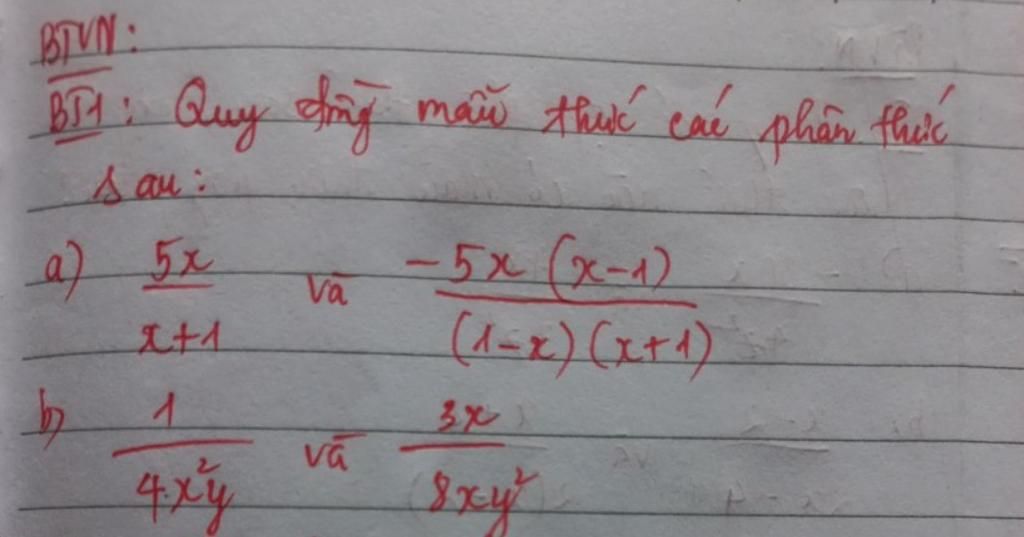 BTVN:
BT1: Quy đồng mẫu thức các phân thức
sau:
a) 5x/(x+1) và -5x(x-1)/((1-x)(x+1))
b) 1/(4.x²y) và 3x/(8xy²)